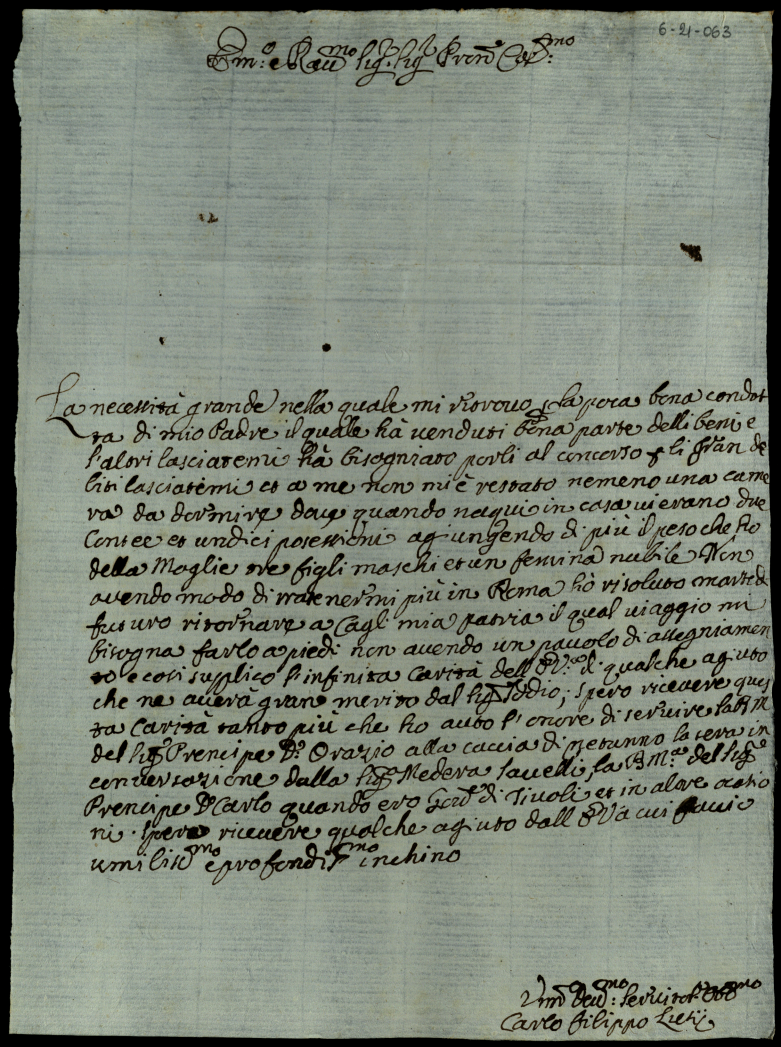 6-21-063
Em:º e Reu:mo Sig. Sig. Pron Col:mo
La necessità grande nella quale mi ritrovo p la poca bona condot
ta di mio Padre il quale hà venduti bona parte delli beni e
l'altri lasciatemi hà bisogniato porli al concorso p li gran de
biti lasciatemi et a me non mi è restato nemeno una came
ra da dormire dove quando naqui in casa vi erano due
Contee et undici posessioni agiungendo di più il peso che ho
della Moglie tre figli maschi et un femina nubile Non
avendo modo di tratenermi più in Roma hò risoluto martedi
futuro ritornare a Cagli mia patria il qual viaggio mi
bisogna farlo a piedi non avendo un pavolo di assegniamen
to e così supplico l'infinita Carità dell' E.V. di qualche agiuto
che ne averà gran merito dal Sig. Iddio; spero ricevere ques
ta Carità tanto più che ho auto l'onore di servire la B M
del Sig. Prencipe D. Orazio alla caccia di netunno la sera in
conversazione dalla Sig. Medera Savelli, la B. M. del Sig.
Prencipe D. Carlo quando ero Gov. di Tivoli et in altre ocasio
ni. Spero ricevere qualche agiuto dall E Va cui faccio
umilis:mo e profondis:mo inchino
Um:o Deu:mo Servitor Obb:mo
Carlo Filippo Lietij